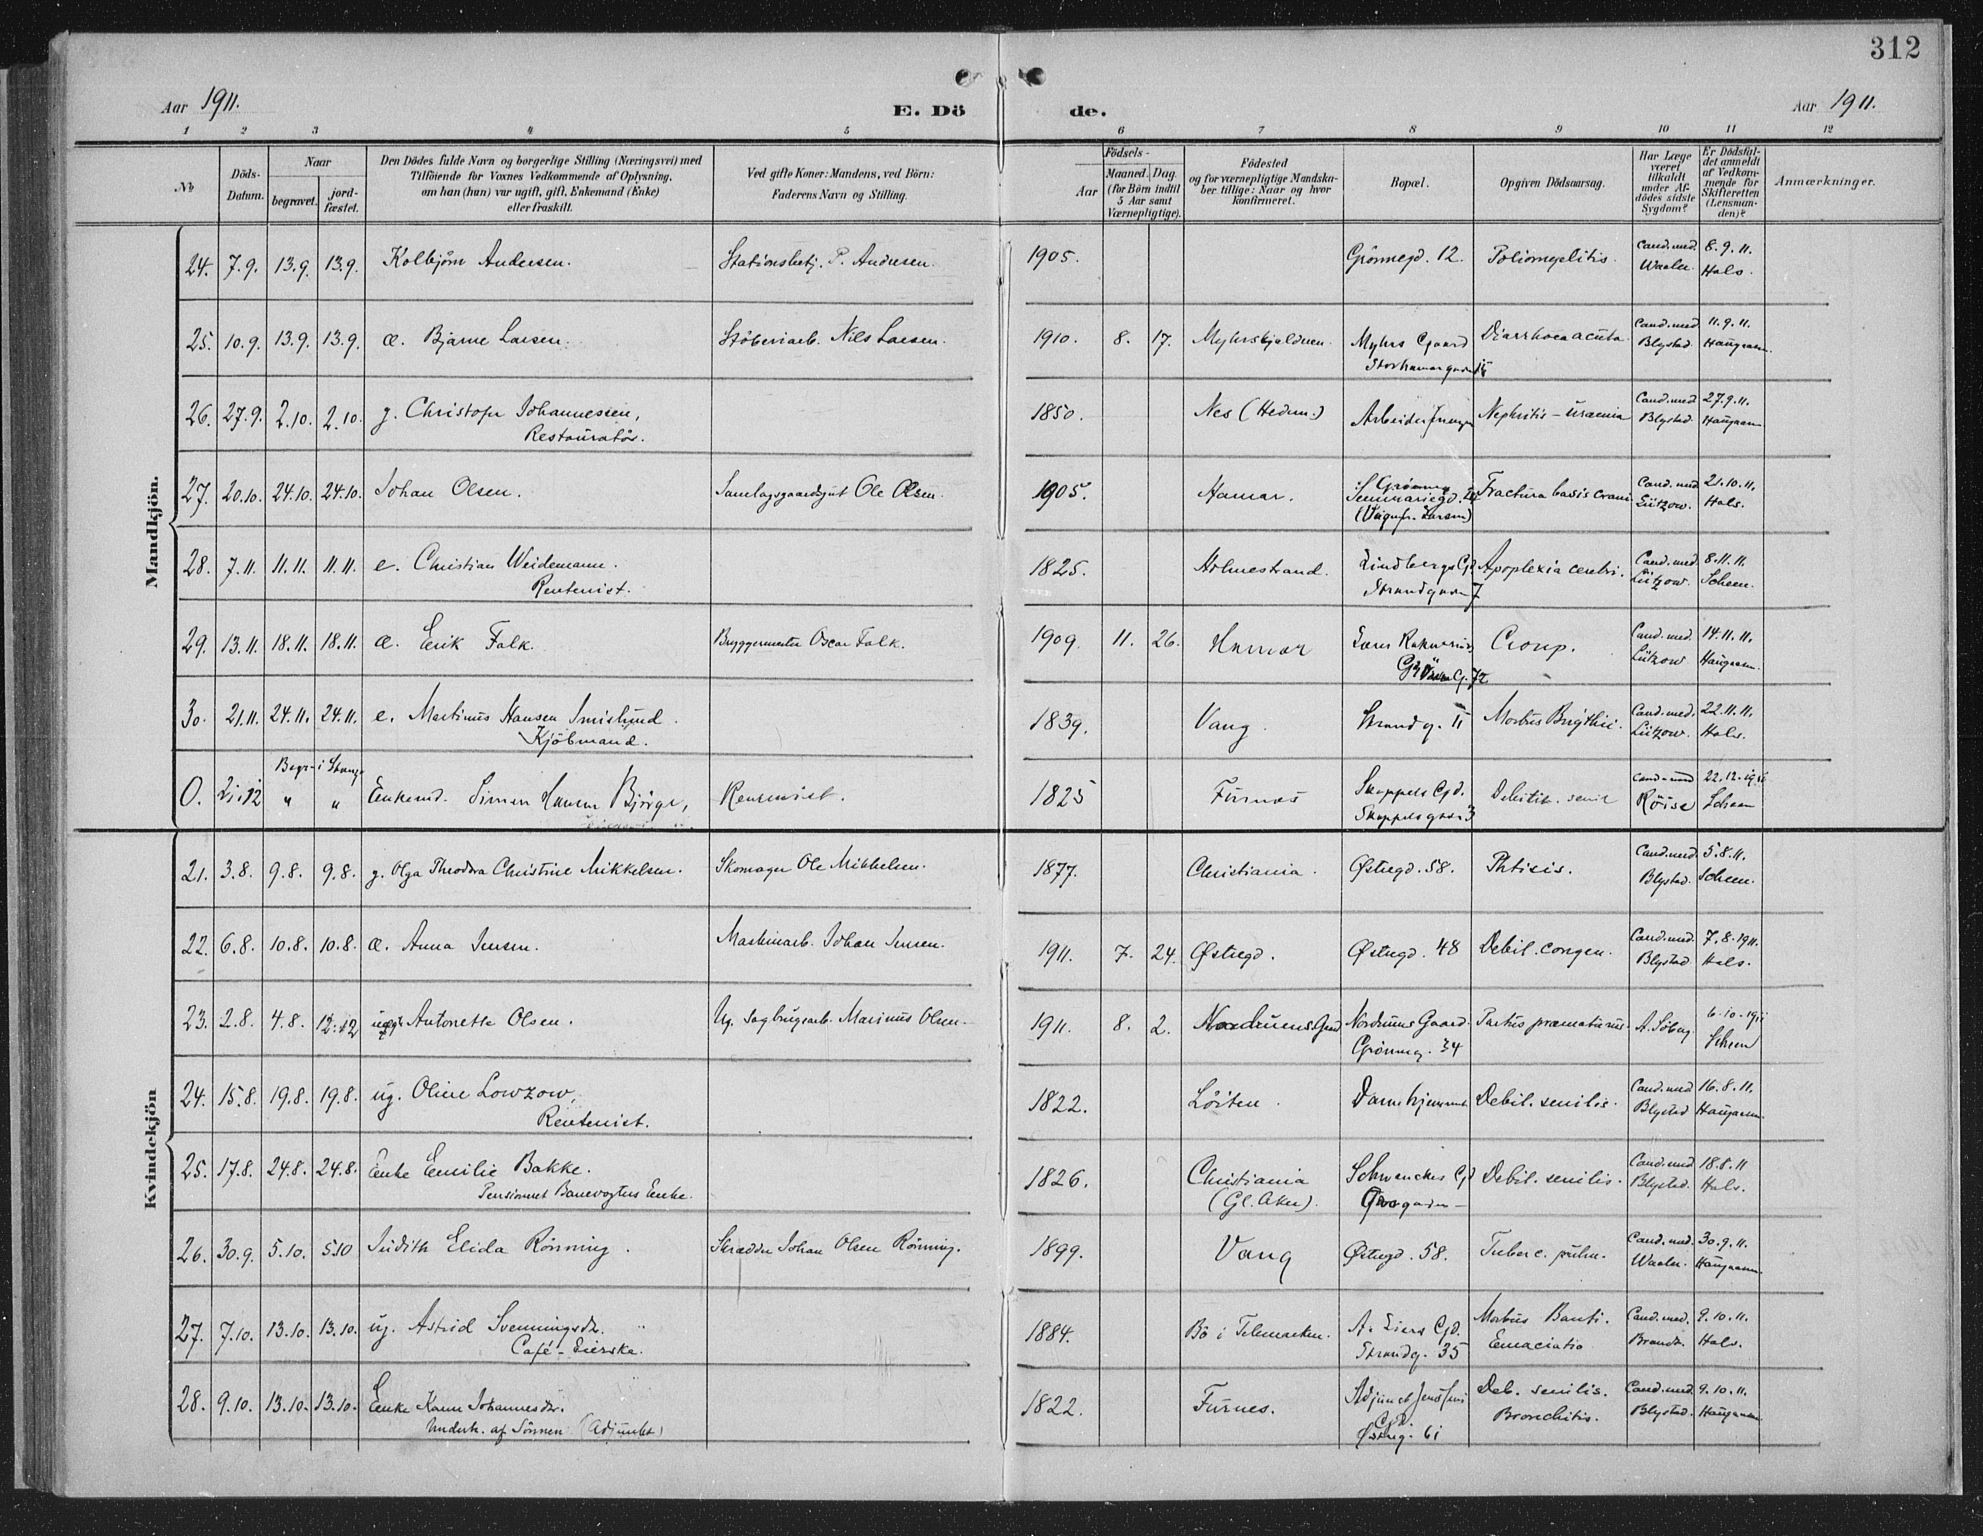 312
Aar 1911.
E. Dö
de.
Aar 1911.
1 2 3 4 5 6 7 8 9 10 11 12
No
Döds-Datum.
Naar
begravet.
jord-fæstet.
Den Dödes fulde Navn og borgerlige Stilling (Næringsvei) med
Tilföiende for Voxnes Vedkommende af Oplysning,
om han (hun) var ugift, gift, Enkemand (Enke)
eller fraskilt.
Ved gifte Koner: Mandens, ved Börn:
Faderens Navn og Stilling.
Födsels-
Aar
Maaned. Dag.
(for Börn indtil
5 Aar samt
Værnepligtige).
Födested
og for værnepligtige Mandska-
ber tillige: Naar og hvor
konfirmeret.
Bopæl.
Opgiven Dödsaarsag.
Har Læge
været
tilkaldt
under Af-
dödes sidste
Sygdom?
Er Dödsfal-
det anmeldt
af Vedkom-
mende for
Skifteretten
(Lensman-
den)?
Anmærkninger.
Mandkjön.
24. 7.9. 13.9. 13.9. Kolbjörn Andersen. Stationsbetj. P. Andresen. 1905. Grönnegd. 12. Poliomyelitis. Cand. med. Waaler. 8.9.11. Hals.
25. 10.9. 13.9. 13.9. æ. Bjarne Larsen. Stöberiarb. Nils Larsen. 1910. 8. 17. Myhrs Gaard Diarrhoea acuta. Cand. med Blystad. 11.9.11.
26. 27.9. 2.10. 2.10. g. Christofer Johannessen,
Restauratör. 1850. Nes (Hedm.) Nephritis - uræmia Cand. med Blystad. 27.9.11.
27. 20.10. 24.10. 24.10. Johan Olsen. Ole Olsen. 1905. Hamar. Grönneg
Seminariegd. Fractura basis cranii Cand. med Lützow. 21.10.11. Hals.
28. 7.11. 11.11. 11.11. e. Christian Weidemann.
Rentenist. 1825. Holmestrand. Lindbergs Gd
Strandgaden 7 Apoplexia cerebri. Cand. med. Lützow. 8.11.11. Scheen.
29. 13.11. 18.11. 18.11. æ. Erik Falk. Bryggermester Oscar Falk. 1909. 11. 26. Hamar Croup. Cand. med. Lützow 14.11.11.
30. 21.11. 24.11. 24.11. e. Martinus Hansen
Kjöbmand. 1839. Vang. Strandg. Morbus Brigthii. Cand. med. Lützow. 22.11.11. Hals.
Begr. i Stange
O. 21.12 " " Enkemd. Simen Hansen Björge, Rentenist. 1825 Furnes Skappels Gd.
Skappelsgaden 3 Debilit. senil Cand. med Röise 22.12.1911 Scheen
Kvindekjön
21. 3.8. 9.8. 9.8. g. Olga Theodora Christine Mikkelsen. Skomager Ole Mikkelsen. 1877. Christiania. Östregd. 58. Phtisis. Cand. med. Blystad. 5.8.11. Scheen.
22. 6.8. 10.8. 10.8. æ. Anna Jensen. Maskinarb. Johan Jensen. 1911. 7. 24. Østregd. Østregd. 48 Debil. congen. Cand. med. Blystad. 7.8.1911. Hals.
23. 2.8. 4.8. 12.12 Antonette Olsen. Ug. Sagbrugsarb. Marinus Olsen. 1911. 8. 2. Nordrums Gaard Nordrums Gaard.
Grönneg. 34 Partus præmaturus. 6.10.1911 Scheen
24. 15.8. 19.8. 19.8. ug. Oline Lowzow,
Rentenist. 1822. Löiten. Damehjemmet Debil. senilis. Cand. med Blystad 16.8.11.
25. 17.8. 24.8. 24.8. Enke Emilie Bakke.
Pensioneret Banevogters Enke. 1826. Christiania
(Gl. Aker). Schwenckes Gd Debil. senilis. Cand. med Blystad. 18.8.11 Hals.
26. 30.9. 5.10. 5.10 Judith Elida Rönning. Skrædder Johan Olsen Rönning. 1899. Vang Østregd. 58. Tuberc. pulm. Cand. med. Waaler. 30.9.11.
27. 7.10. 13.10. 13.10. ug. Astrid Svenningsdr.
Café-Eierske. 1884. Bö i Telemarken. A. Liers Gd.
Strandg. 35 Morbus Banti.
Emaciatio Cand. med. Brandt. 9.10.11. Hals.
28. 9.10. 13.10. 13.10. Enke Karen Johannesdr.
Underh. af Sönnen (Adjunkt) 1822. Furnes. Adjunct Jens
Gd.
Østreg. 61 Deb. senilis.
Bronchitis. Cand. med. Blystad. 9.10.11.